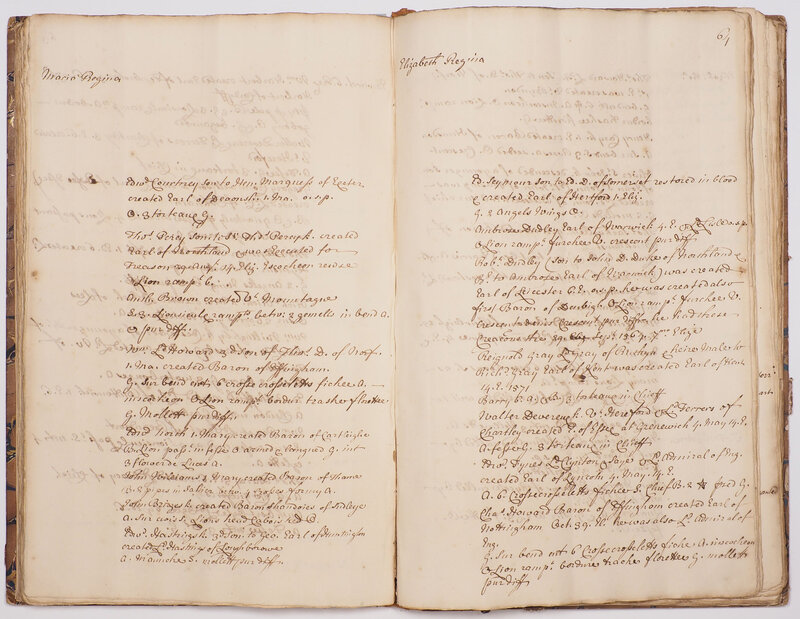 Maria Regina
Edw. Courtney son to Hen. Marquess of Exeter
created Earl of Devonsh. 1. Ma. o.s.p.
O. 3 torteaux G.
Tho. Percy son to Sr Tho. Percy created
Earl of Northland was executed for
Treason 14. Eliz.
Lion ramp. B.
Anth. Brown created V. Mountague
S. 3 Lions ramp. betw. 2 gemells in bend A.
pur diff.
Wm. Ld Howard 3 son of Tho. D. of Norf.
1. Ma. created Baron of Effingham.
G. Sur bend entr. 6 crosse crosseletts fichee A.
inescocheon O Lion ramp. bordur florettee
G. Mollett pur diff.
Edw. North 1. Mary created Baron of
Lion pass. in fesse O armed & longued G. int
3 flowerdeluces A.
John Williams 1 Mary created Baron of Thame
B.
John Bridges created Baron Shandoies of Sudley
A. Sur crois S. Leopds head
Edw. Hastings 3 son to Geo. Earl of Huntington
created Ld. Hastings of Loughborowe
A. Maunche S. mollett pur diff.
64
Elizabeth Regina
Ed. Seymour son to Ed. D. of Somerset restored in blood
& created Earl of Hertford 1. Eliz.
G. 2 Angels Wings O.
Ambrose Dudley Earl of Warwick 4. E. & Ld Lisle o.s.p.
O Lion ramp. furchee V. crescent pur diff.
Rob. Dudley son to John D. Duke of Northland &
Br. to Ambrose Earl of Warwick was created
Earl of Leicester 6. E. o.s.p. he was created also
first Baron of Denbigh O Lion ramp. furchee V.
Crescent pur diff. he had these
Creations the 29 Sept. 1564. 7mo. Eliz.
Reignold Gray Ld. Gray of Ruthyn & heire Male to
Rich. Gray Earl of Kent was created Earl of Kent
14. E. 1571
Barry 6. A & B. 3 torteaux in Chieff
Walter Devereux V. Hereford Ld. Ferrers of
Chartley created E. of Essex at Grenewich 4. May 14. E.
A. fesse G. 3 torteaux in Chieff.
Edw. Fynes Ld. Clynton & Saye & Ld. Admiral of Eng.
created Earl of Lincoln 4. May. 14. E.
A. 6 Crosse crosseletts fichee S. Chief B. 2 pred G.
Cha. Howard Baron of Effingham created Earl of
Nottingham Oct. 39. El. he was also Ld. Admiral of
Eng.
G. Sur bend entr 6 Crosse crosseletts fichee A. inescocheon
O Lion ramp. bordure florettee G. mollett
pur diff